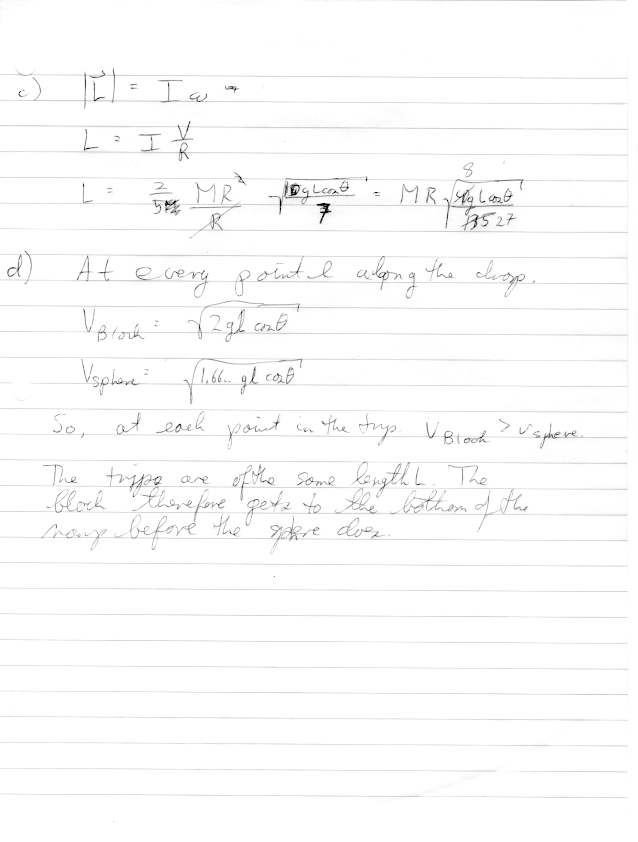 c) |L⃗| = I ω
L = I V/R
L = 2/5 MR²/R √(10gLcosθ/7) = MR √(8gLcosθ/35)
d) At every point l along the drop.
V Block = √(2gl cosθ)
Vsphere = √(1.66.. gl cosθ)
So, at each point in the trip. V Block > V sphere.
The tripps are of the same length L. The
block therefore gets to the bottom of the
ramp before the sphere does.